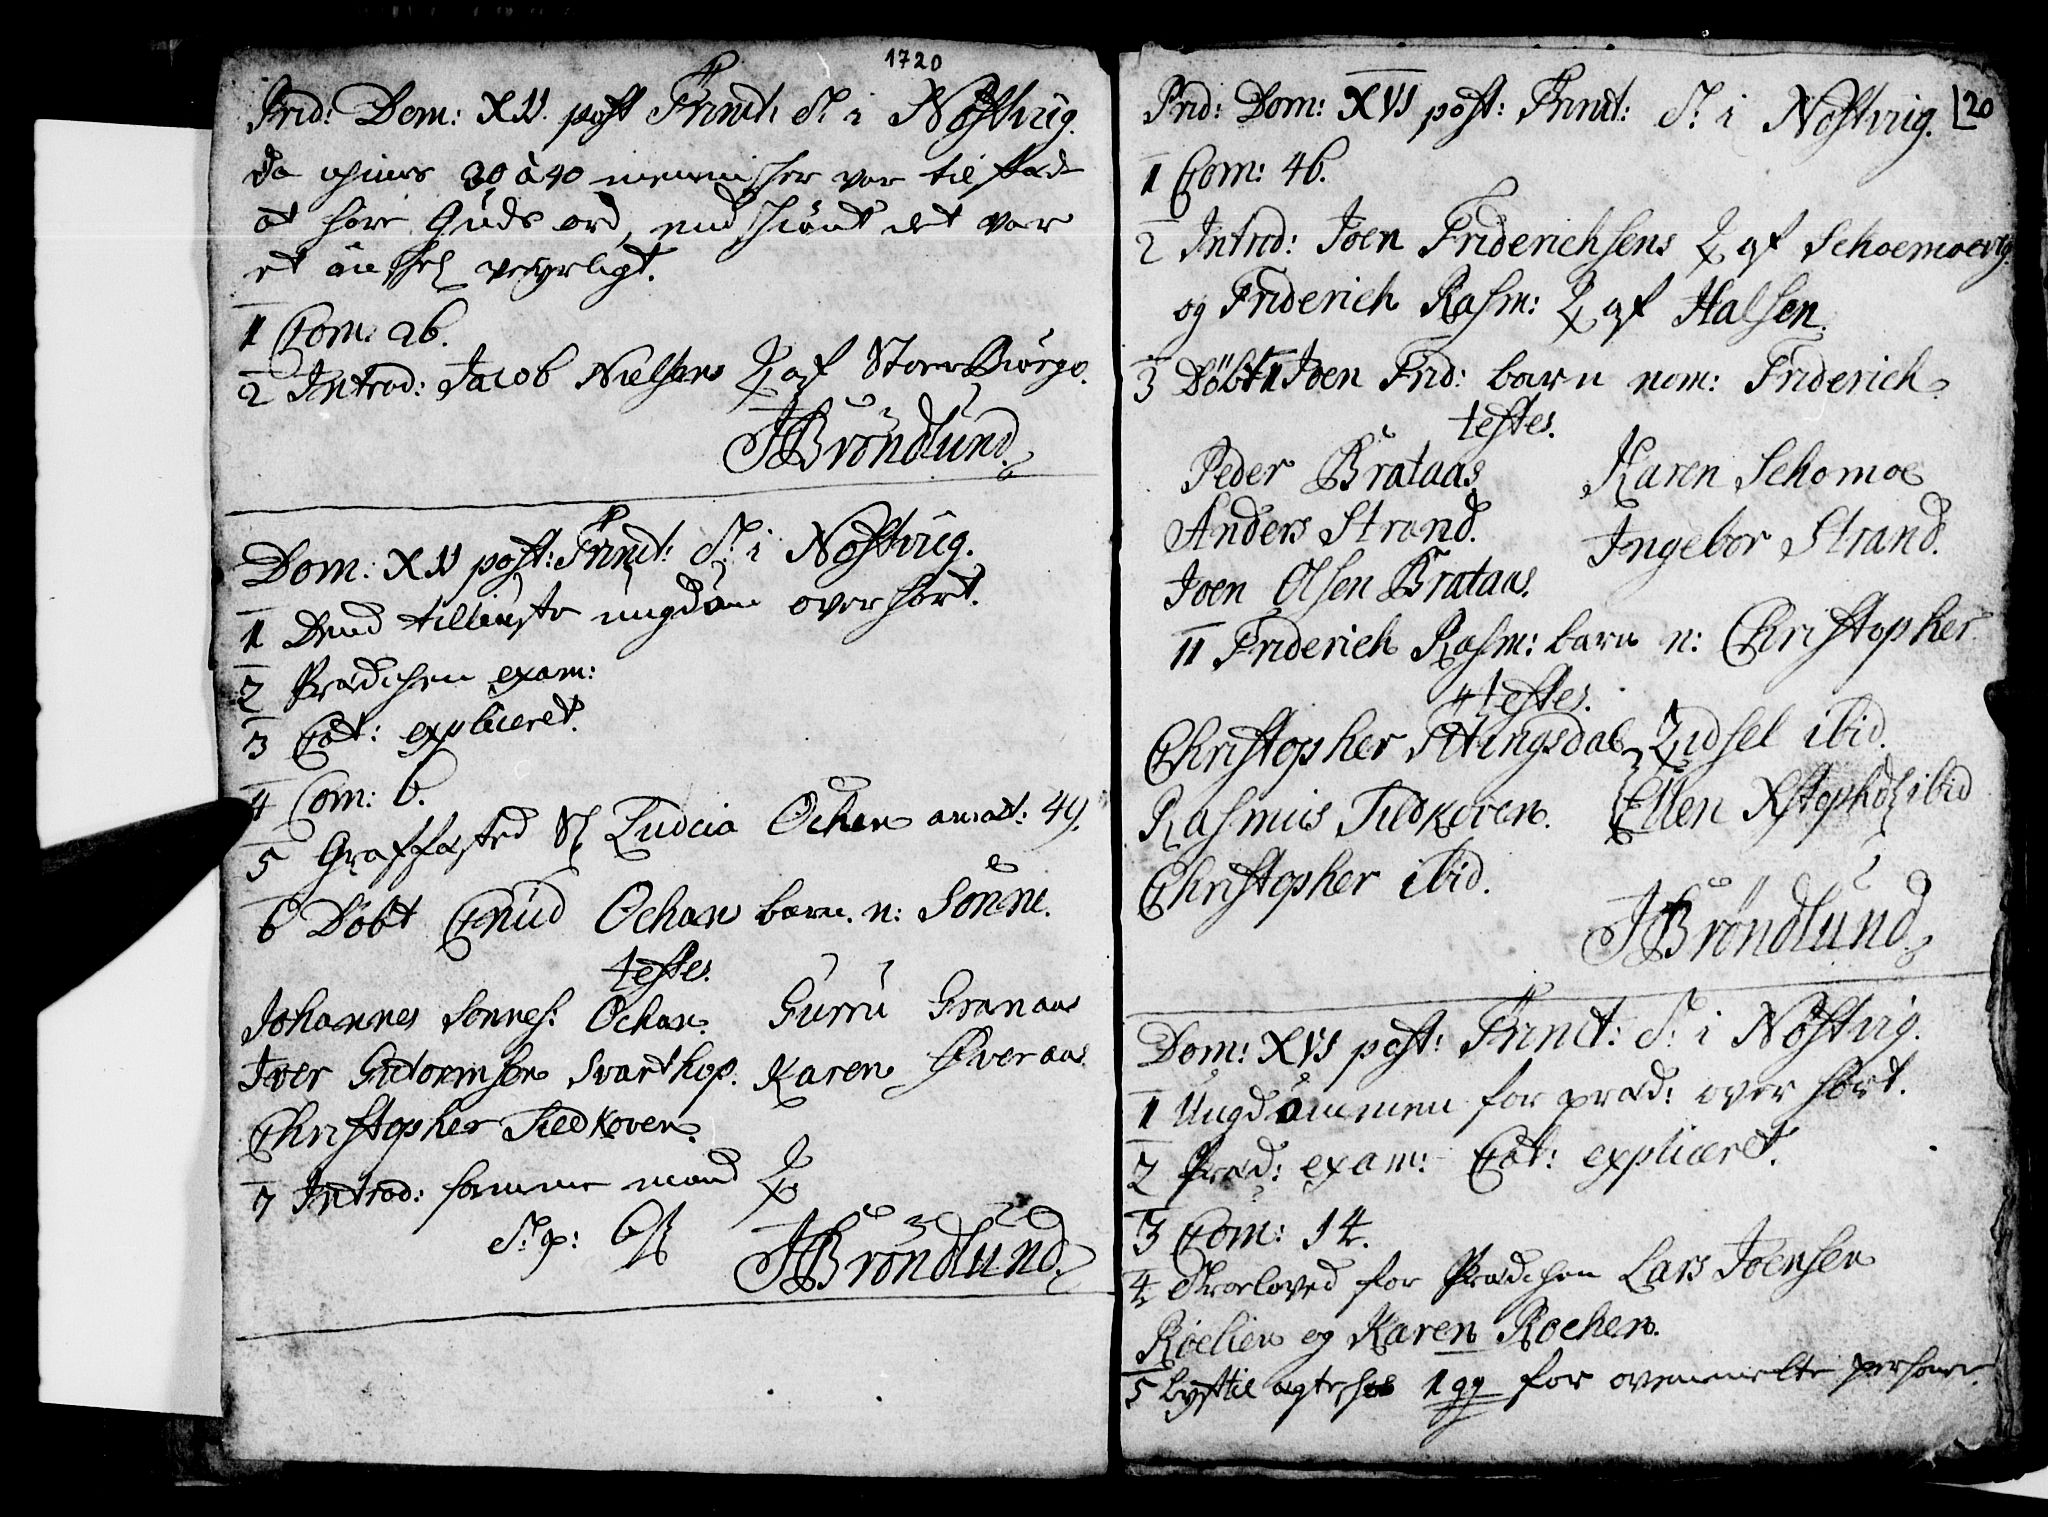 1720
Prid: Dom: XV. post Trinit: S. i Nøstvig.
da ohnues 30 à 40 mennisher var tilstæde
at høre Guds ord, endskiønt det var
et veyrligt.
1 Com: 26.
2 Introd: Jacob Nielsens Q af StoerBiørgo.
JBrøndlund.
Dom: XV post: Trinit: S. i Nøstvig.
1 Dend tilliuste ungdom overhørt.
2 Prædichen exam:
3 Cat: expliceret.
4 Com: 6.
5 Graffæsted Sl Ludcia Ochen anæt: 49.
6 Døbt Cnud Ochan barn. n: Sønni.
testes.
Johannes Sønnes: Ochan. Gurru Granaas
Iver Guttormsen Svarthop. Karen Øveraas.
Christopher Tiedkoren.
7 Introd: samme mand Q
S. p: 6ß
JBrøndlund.
20
Prid: Dom: XVI post: Trinit: S. i Nøstvig.
1 Com: 46.
2 Introd: Joen Friderichsens Q af Schoemoevig
og Friderich Rasm: Q af Halsen.
3 Døbt 1 Joen Frid: barn nom: Friderich.
testes.
Peder Brataas Karen Schomoe
Anders Strand. Ingebor Strand.
Joen Olsen Brataas.
11 Friderich Rasm: barn n: Christopher
testes.
Christopher Sitingsdal Zidsel ibid.
Rasmus Tiedkoren. Ellen Xstophd ibid
Christopher ibid.
JBrøndlund.
Dom: XVI post: Trinit: S. i Nøstvig.
1 Ungdommen for præd: overhørt.
2 Præd: exam: Cat: expliceret.
3 Com: 14.
4 Troeloved for Prædichen Lars Joensen
Røelien og Karen Rochen.
5 lyst til ægteskab 1 gg for ovenmelte persohner.